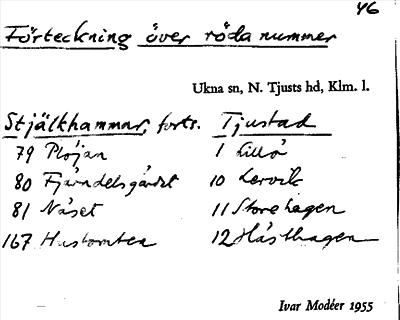 46
Förteckning över röda nummer
Ukna sn, N. Tjusts hd, Klm. l.
Stjälkhammar, forts. Tjustad
79 Plöjan 1 Lillö
80 Fjärndelsgärdet 10 Lervik
81 Näset 11 Storehagen
167 Hustomten 12 Hästhagen
Ivar Modéer 1955